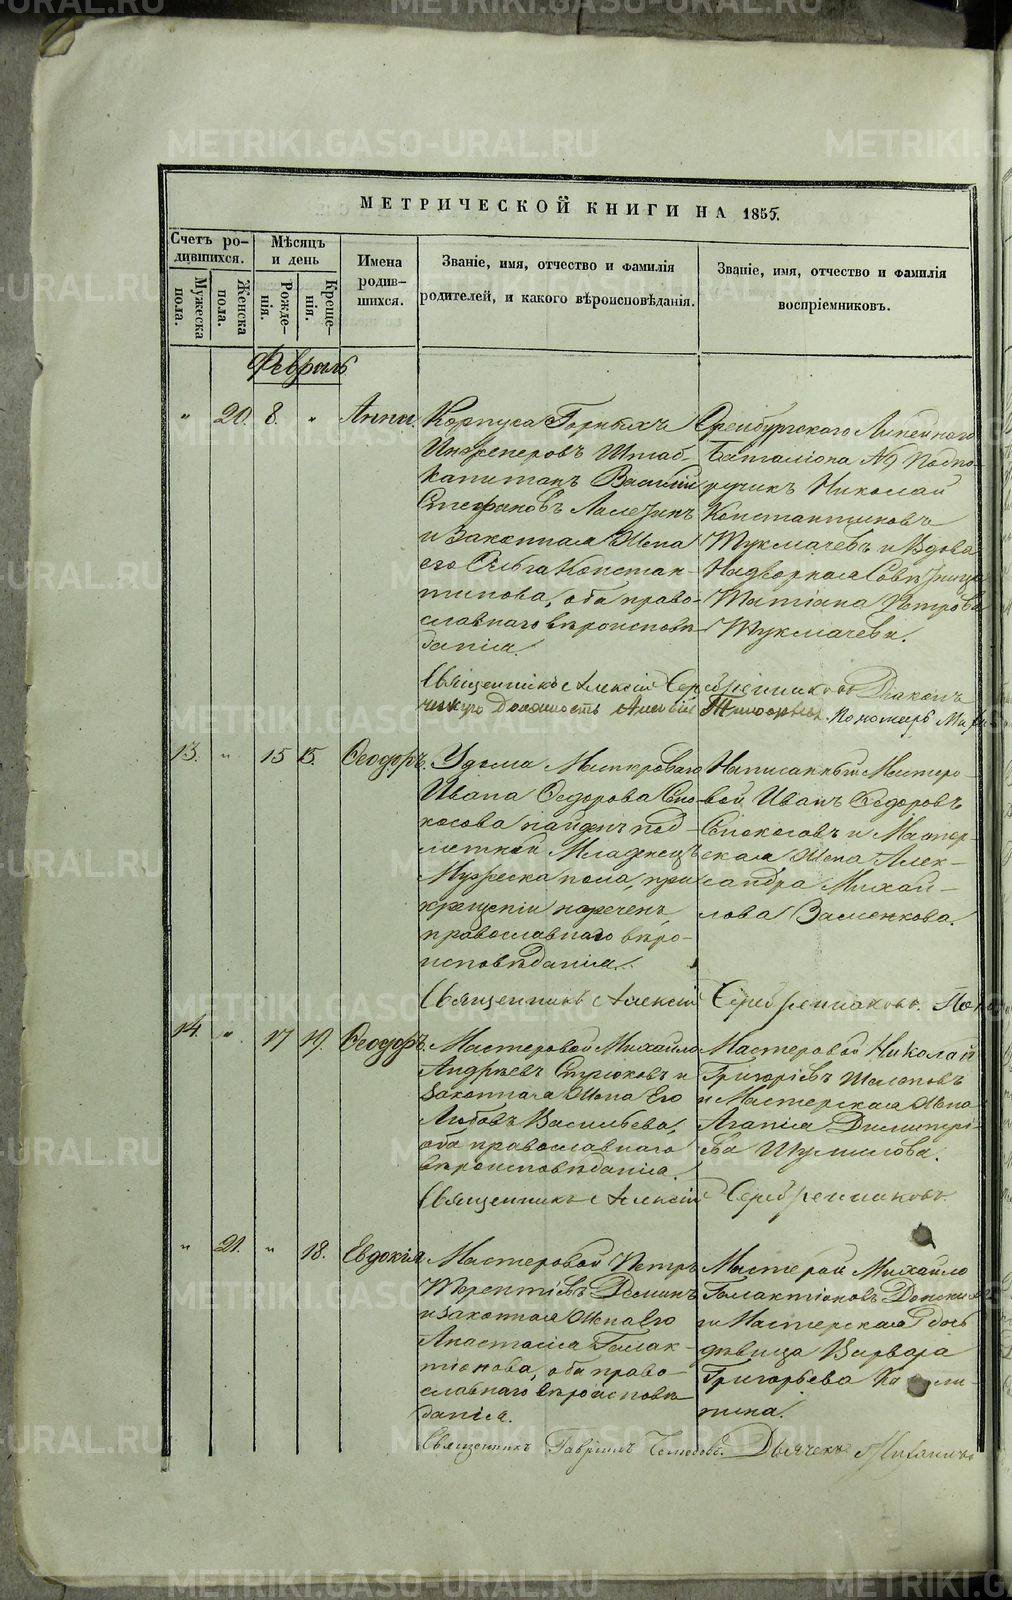 МЕТРИЧЕСКОЙ КНИГИ НА 1855.
Счетъ ро-
дившихся.
Мужеска
пола.
Женска
пола.
Мѣсяцъ
и день
Рожде-
нія.
Креще-
нія.
Имена
родив-
шихся.
Званіе, имя, отчество и фамилія
родителей, и какого вѣроисповѣданія.
Званіе, имя, отчество и фамилія
воспріемниковъ.
Февраль
" 20. 8. " Анна.
Корпуса Горныхъ
Инженеровъ Штаб-
Капитанъ Василій
Стефановъ
и Законная Жена
его Ольга Констан-
тинова, оба право-
славнаго вѣроисповѣ
данія.
Оренбургского Линейного
Баталіона №9 Подпо-
ручикъ Николай
Константиновъ
Тукмачевъ и Вдова
Надворная Совѣтница
Татіана Петрова
Тукмачева.
Священникъ Алексій Серебренниковъ Діакон
должность Алексій Пономарь
13. " 15 15. Ѳеодоръ.
У дома Мастероваго
Ивана Ѳедорова Сно-
косова найденъ под-
меткой Младенецъ
Мужеска пола, при
крещеніи нареченъ
православнаго вѣро-
исповѣданія.
Написанный Мастеро-
вой Иванъ Ѳедоровъ
Снокосовъ и Мастер-
ская Жена Алек-
сандра Михай-
лова Заменкова.
Священникъ Алексій Серебренниковъ.
14. " 17 19. Ѳеодоръ.
Мастеровой Михайло
Андреевъ Стрюковъ и
Законная Жена Его
Любовь Васильева,
оба православнаго
вѣроисповѣданія.
Мастеровой Николай
Григоріевъ Шалеповъ
и Мастерская Жена
Агапія Димитрі-
ева Шумилова.
Священникъ Алексій Серебренниковъ.
" 21. " 18. Евдокія
Мастеровой Петръ
Терентіевъ Деминъ
и Законная Жена Его
Анастасія Галак-
тіонова, оба право-
славнаго вѣроисповѣ
данія.
Мастерой Михайло
Галактіоновъ Донских
и Мастерская Дочь
дѣвица Варвара
Григорьева
Священник Гавріилъ Дьячекъ
METRIKI.GASO-URAL.RU